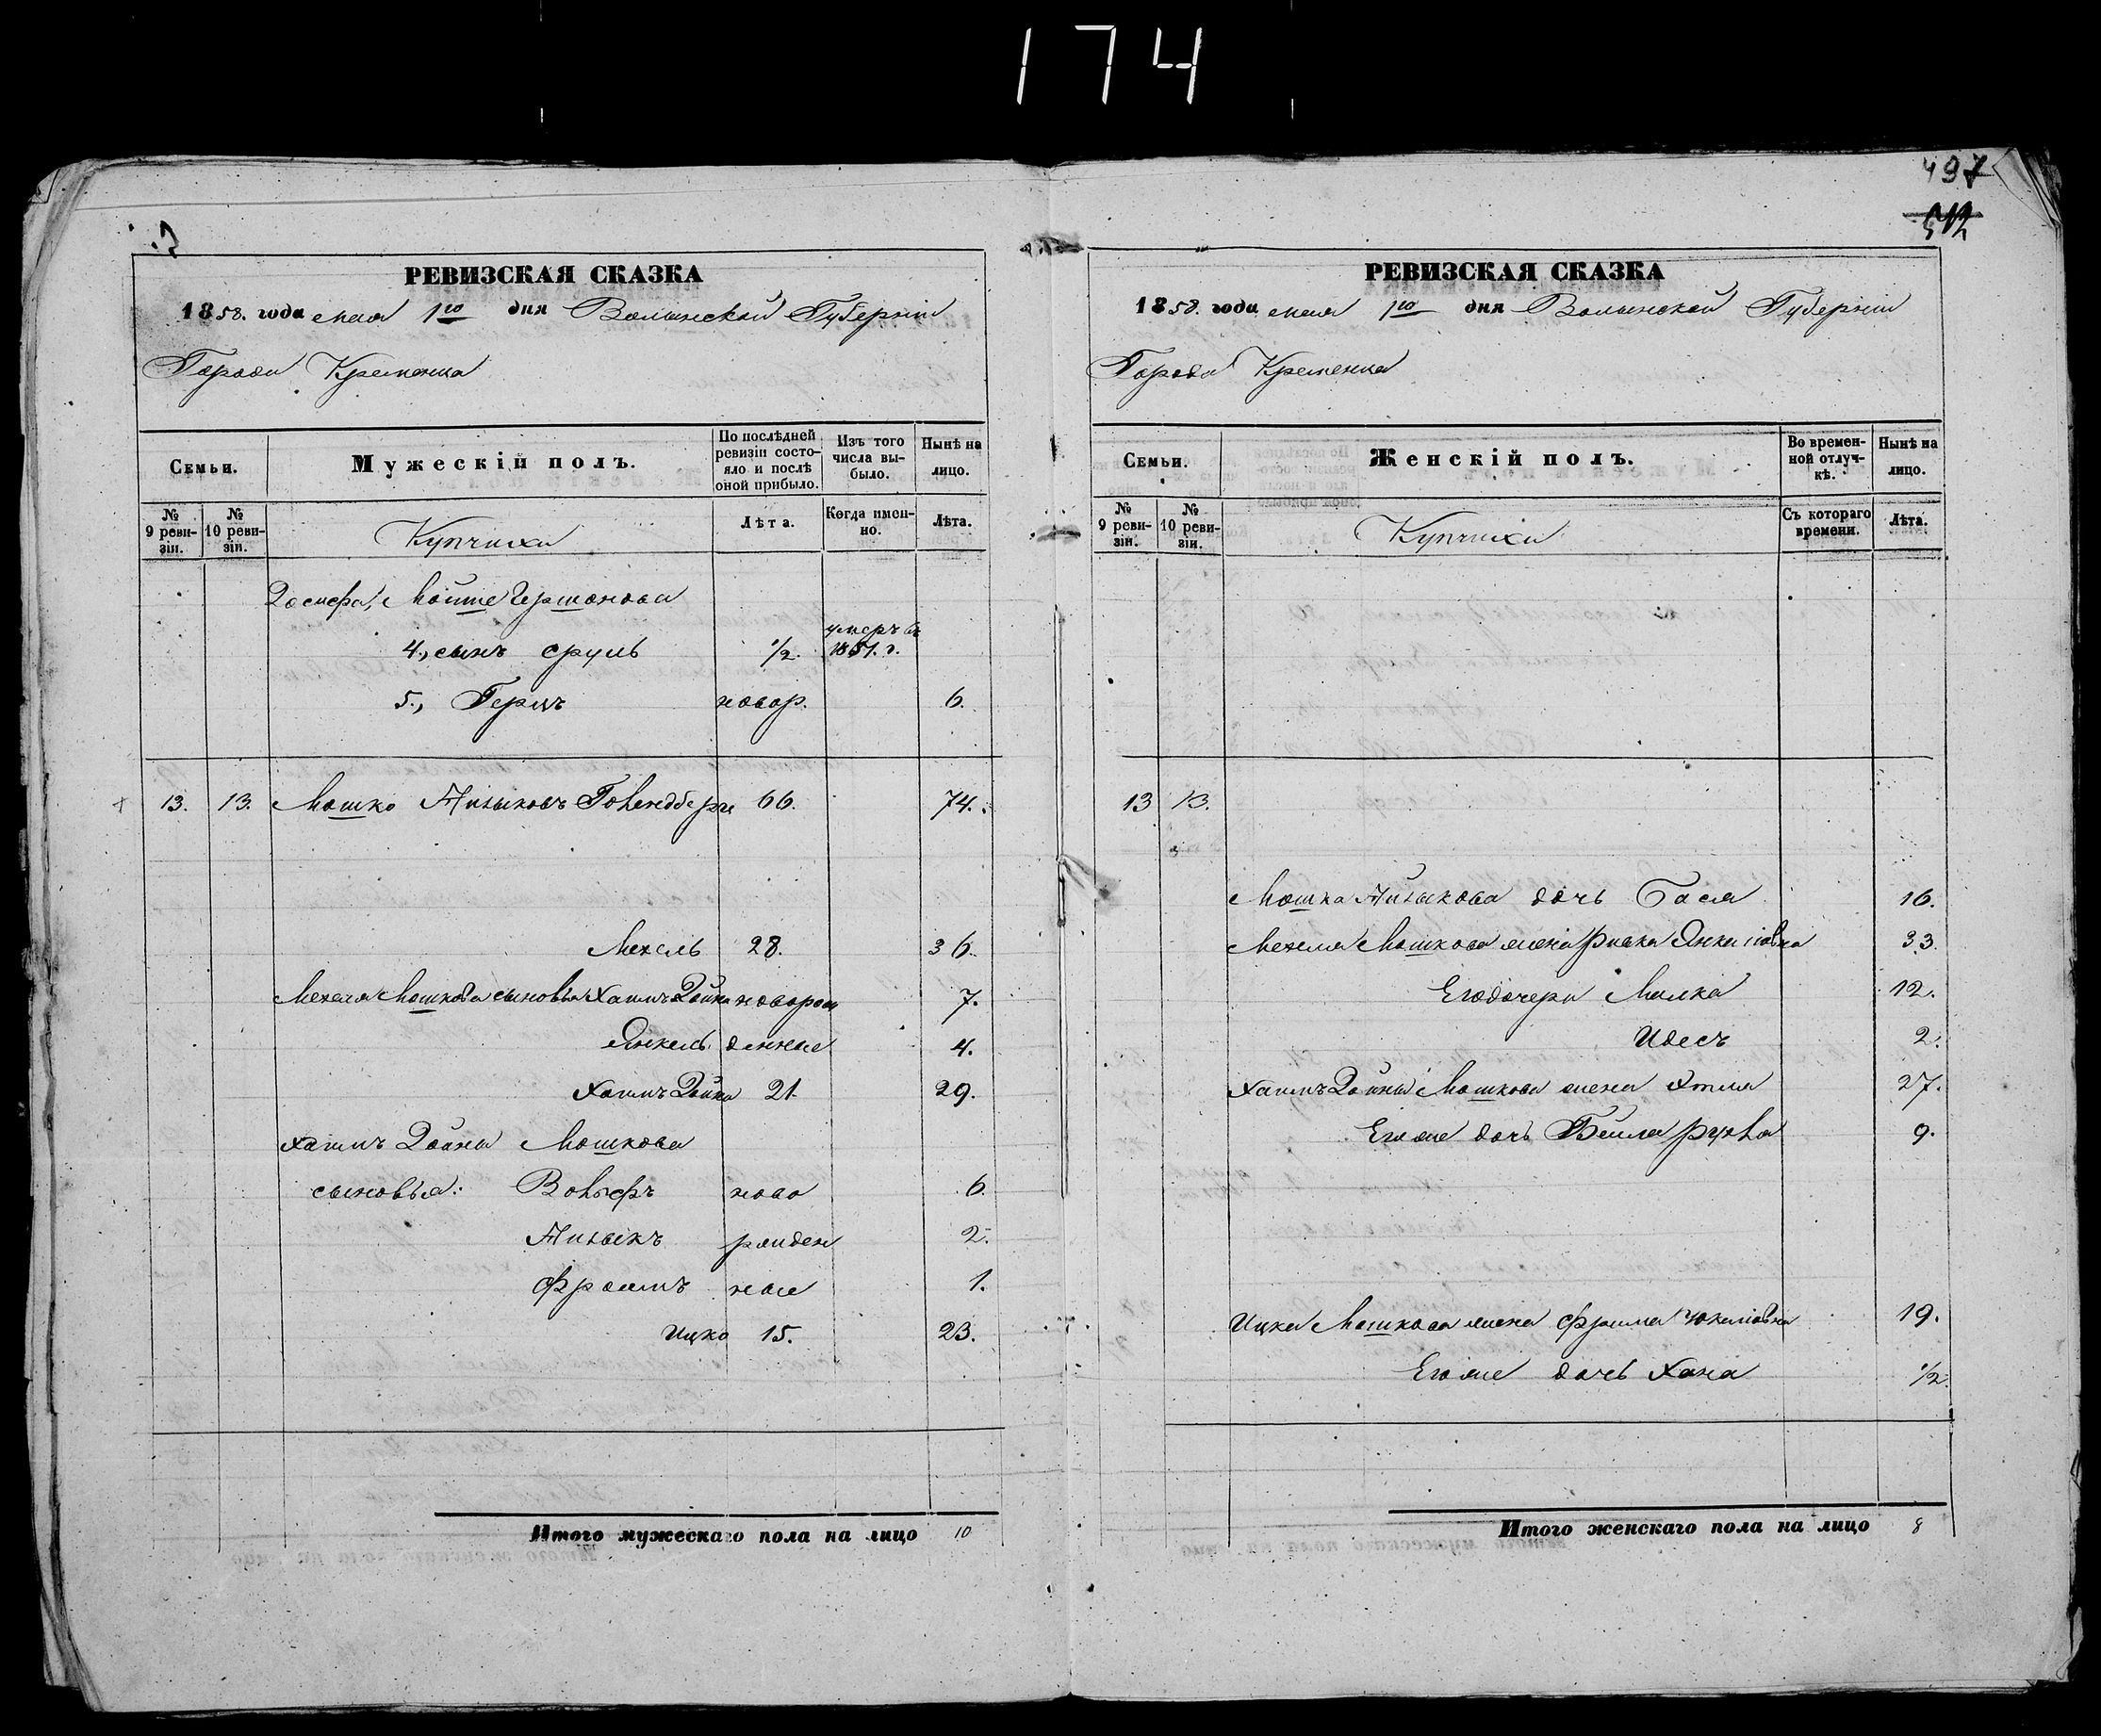 174
497
512
РЕВИЗСКАЯ СКАЗКА
1858. года мая 1го дня Волынской Губерніи
Города Кременца
Семьи.
Мужескій полъ.
По послѣдней ревизіи состояло и послѣ оной прибыло.
Изъ того числа выбыло.
Нынѣ на лицо.
№ 9 ревизіи.
№ 10 ревизіи.
Купчихи
Лѣта.
Когда именно.
Лѣта.
Мошe Гершонова
4., сынъ Сруль 1/2. умеръ въ 1851. г.
5., Герцъ новор. 6.
13. 13. Мошко Айзыковъ 66. 74.
Мехель 28. 36.
Мехеля Мошкова сыновья Хаимъ Дойна новорож 7.
Янкель денные 4.
Хаимъ Дойна 21. 29.
Хаимъ Дойна Мошкова
сыновья: Вольфъ ново 6.
Айзыкъ рожден 2.
Фроимъ ные 1.
Ицко 15. 23.
Итого мужескаго пола на лицо 10
РЕВИЗСКАЯ СКАЗКА
1858. года мая 1го дня Волынской Губерніи
Города Кременца
Семьи.
Женскій полъ.
Во временной отлучкѣ.
Нынѣ на лицо.
№ 9 ревизіи.
№ 10 ревизіи.
Купчихи
Съ котораго времени.
Лѣта.
13 13.
Мошка Айзыкова дочь Бася 16.
Мехеля Мошкова жена Ривка Янкеліовна 33.
Его дочери Малка 12.
Идесъ 2.
Хаимъ Дойны Мошкова жена Этля 27.
Его же дочь Бейла Рухля 9.
Ицка Мошкова жена Фрима 19.
Его же дочь Хана 1/2.
Итого женскаго пола на лицо 8